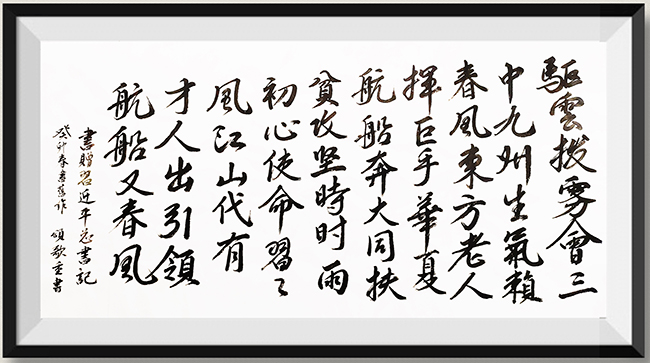 驅雲撥霧會三
中九州生氣賴
春風東方老人
揮巨手華夏
航船奔大同扶
貧攻坚時时雨
初心使命習々
風江山代有
才人出引領
航船又春風
書贈習近平总書記
癸卯春 作 頌歌重書